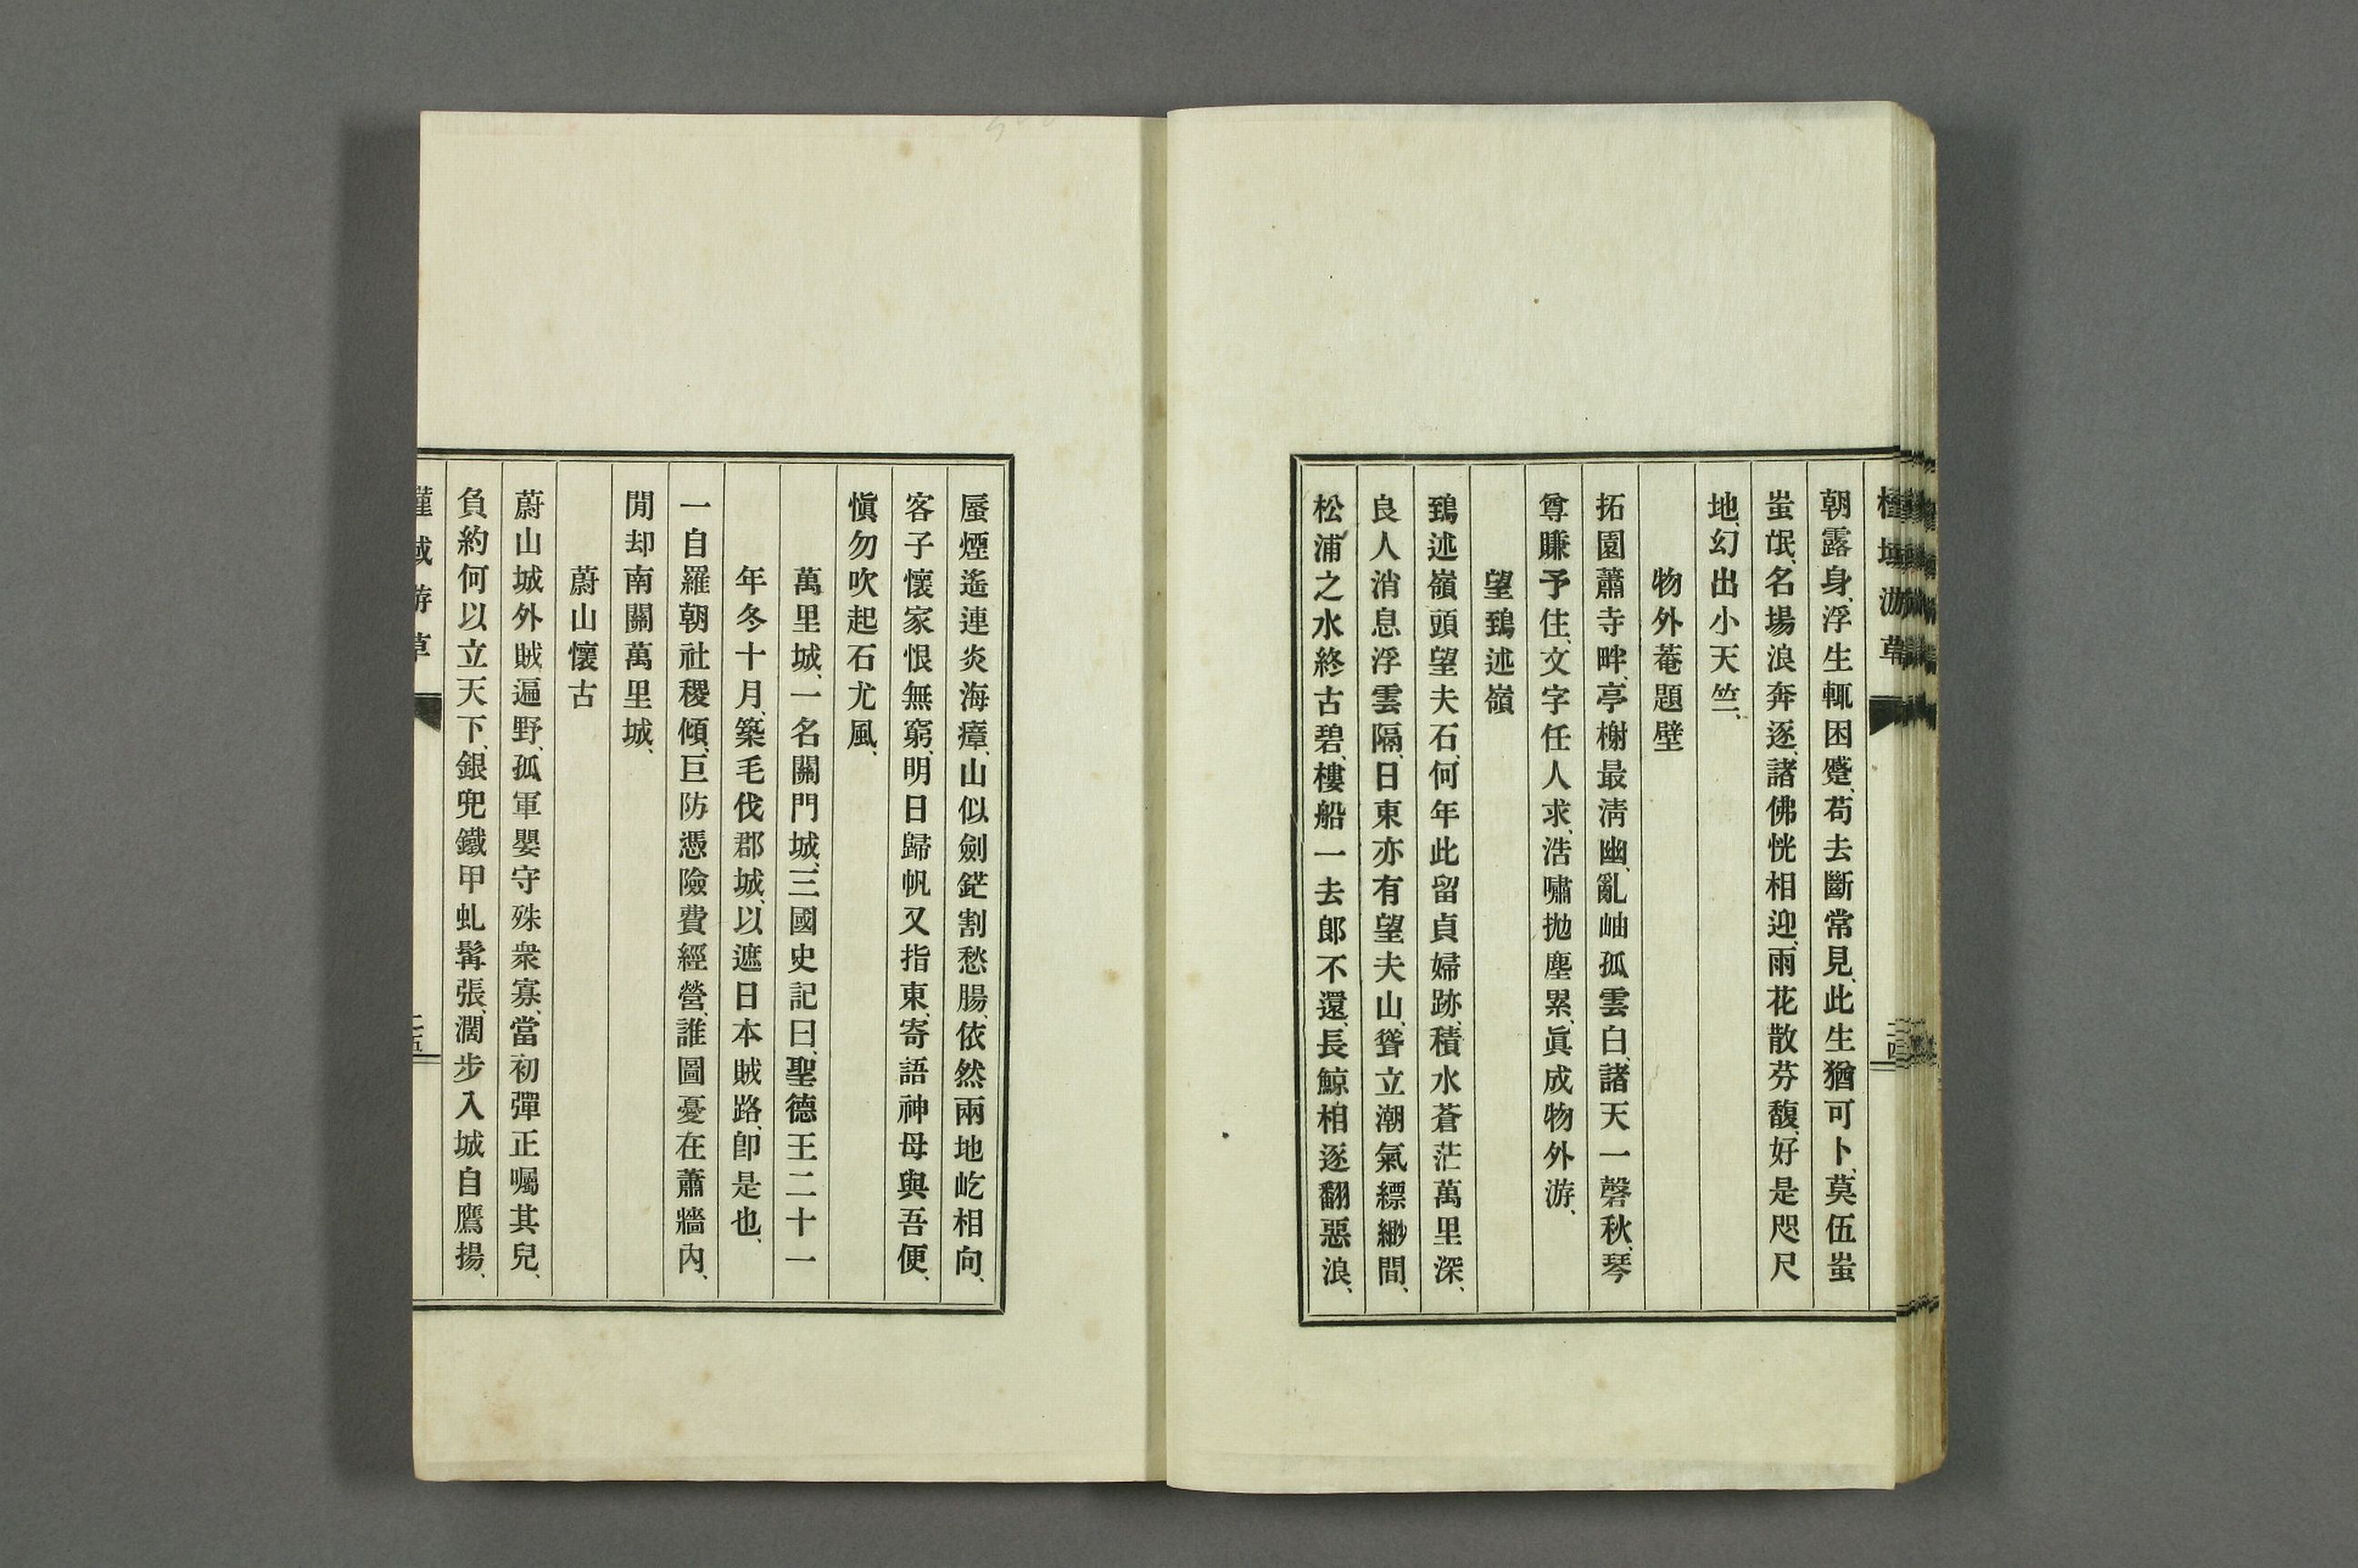 朝露身、浮生輒困躄、苟去斷常見、此生猶可卜、莫伍蚩
蚩氓、名場浪奔逐、諸佛恍相迎、雨花散芬馥、好是咫尺
地、幻出小天竺、
物外菴題壁
拓園蕭寺畔、亭榭最淸幽、亂岫孤雲白、諸天一磬秋、琴
尊賺予住、文字任人求、浩嘯拋塵累、眞成物外游、
望鵄述嶺
鵄述嶺頭望夫石、何年此留貞婦跡、積水蒼茫萬里深、
良人消息浮雲隔、日東亦有望夫山、聳立潮氣縹緲間、
松浦之水終古碧、樓船一去郎不還、長鯨相逐翻惡浪、
蜃煙遙連炎海瘴、山似劍鋩割愁腸、依然兩地屹相向、
客子懷家恨無窮、明日歸帆又指東、寄語神母與吾便、
愼勿吹起石尤風、
萬里城、一名關門城、三國史記曰、聖德王二十一
年冬十月、築毛伐郡城、以遮日本賊路、卽是也、
一自羅朝社稷傾、巨防憑險費經營、誰圖憂在蕭牆內、
閒却南關萬里城、
蔚山懷古
蔚山城外賊遍野、孤軍嬰守殊衆寡、當初彈正囑其兒、
負約何以立天下、銀兜鐵甲虬髯張、濶步入城自鷹揚、
域游草